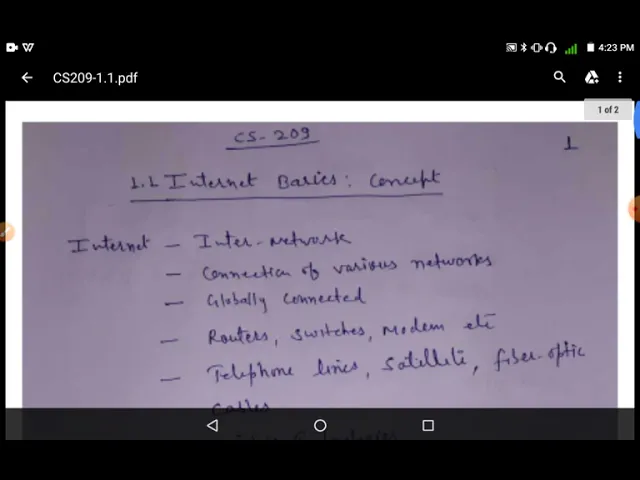 4:23 PM
CS209-1.1.pdf
1 of 2
CS-209
1
1.1 Internet Basics: Concept
Internet - Inter-network
- Connection of various networks
- Globally connected
- Routers, switches, Modem etc
- Telephone lines, Satellite, fiber-optic
cables